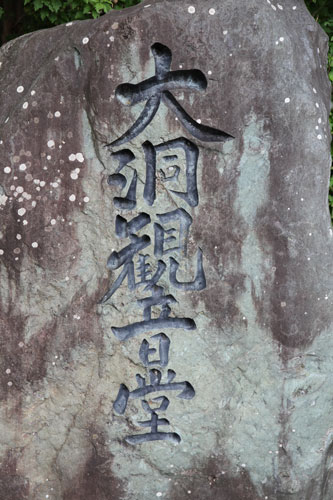 大洞觀音堂